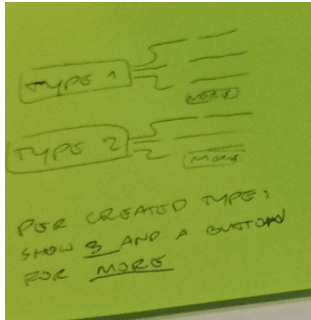 TYPE 1
MORE
TYPE 2
MORE
PER CREATED TYPE;
SHOW 3 AND A BUTTON
FOR MORE